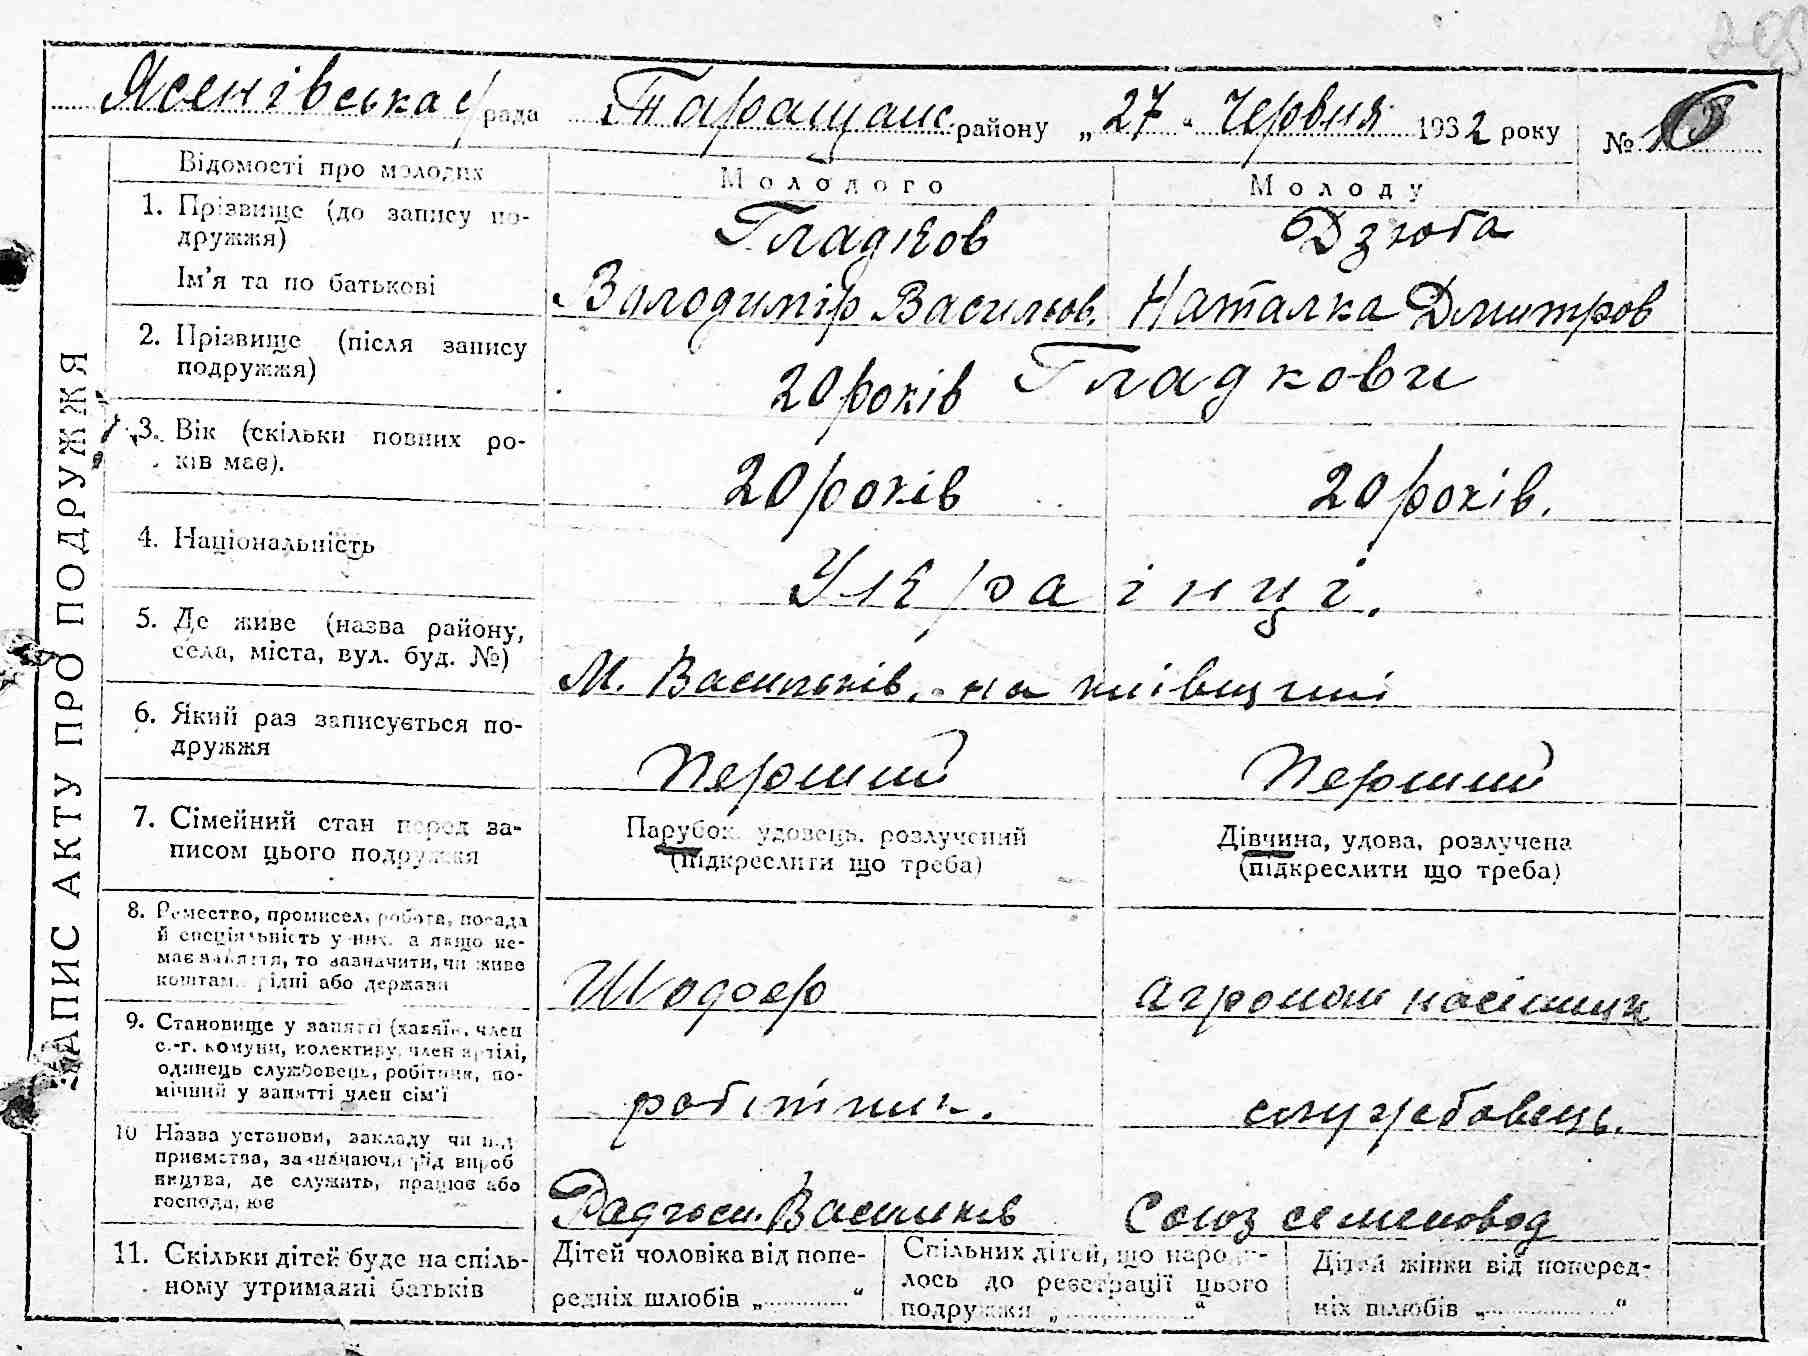 Ясенівська с/рада Таращанс. району „27" Червня 1932 року №
Відомості про молодих
Молодого Молоду
1. Прізвище (до запису по-
дружжя)
Гладков Дзюба
Ім'я та по батькові
Володимір Васильов. Наталка Дмитров
2. Прізвище (після запису
подружжя)
20 років Гладкови
3. Вік (скільки повних ро-
ків має).
20 років 20 років.
4. Національність
Українці.
5. Де живе (назва району,
села, міста, вул. буд. №)
М. Васильків. на київщині
6. Який раз записується по-
дружжя
Перший Перший
7. Сімейний стан перед за-
писом цього подружжя
Парубок, удовець, розлучений
(підкреслити що треба)
Дівчина, удова, розлучена
(підкреслити що треба)
8. Ремество, промисел, робота, посада
й спеціяльність у них, а якщо не-
має заняття, то зазначити, чи живе
коштам рідні або держави
Шофер агроном насінник
9. Становище у занятті (хазяїн, член
с.-г. комуни, колективу, член артілі,
одинець службовець, робітник, по-
мічний у занятті член сім'ї
робітник. службовець.
10 Назва установи, закладу чи під
приємства, зазначаючи рід вироб
ництва, де служить, працює або
господарює
Радгосп. Васильків Союз семеновод
11. Скільки дітей буде на спіль-
ному утриманні батьків
Дітей чоловіка від попе-
редніх шлюбів „............"
Спільних дітей, що народи-
лось до реєстрації цього
подружжя „............"
Дітей жінки від поперед-
ніх шлюбів „............"
ЗАПИС АКТУ ПРО ПОДРУЖЖЯ